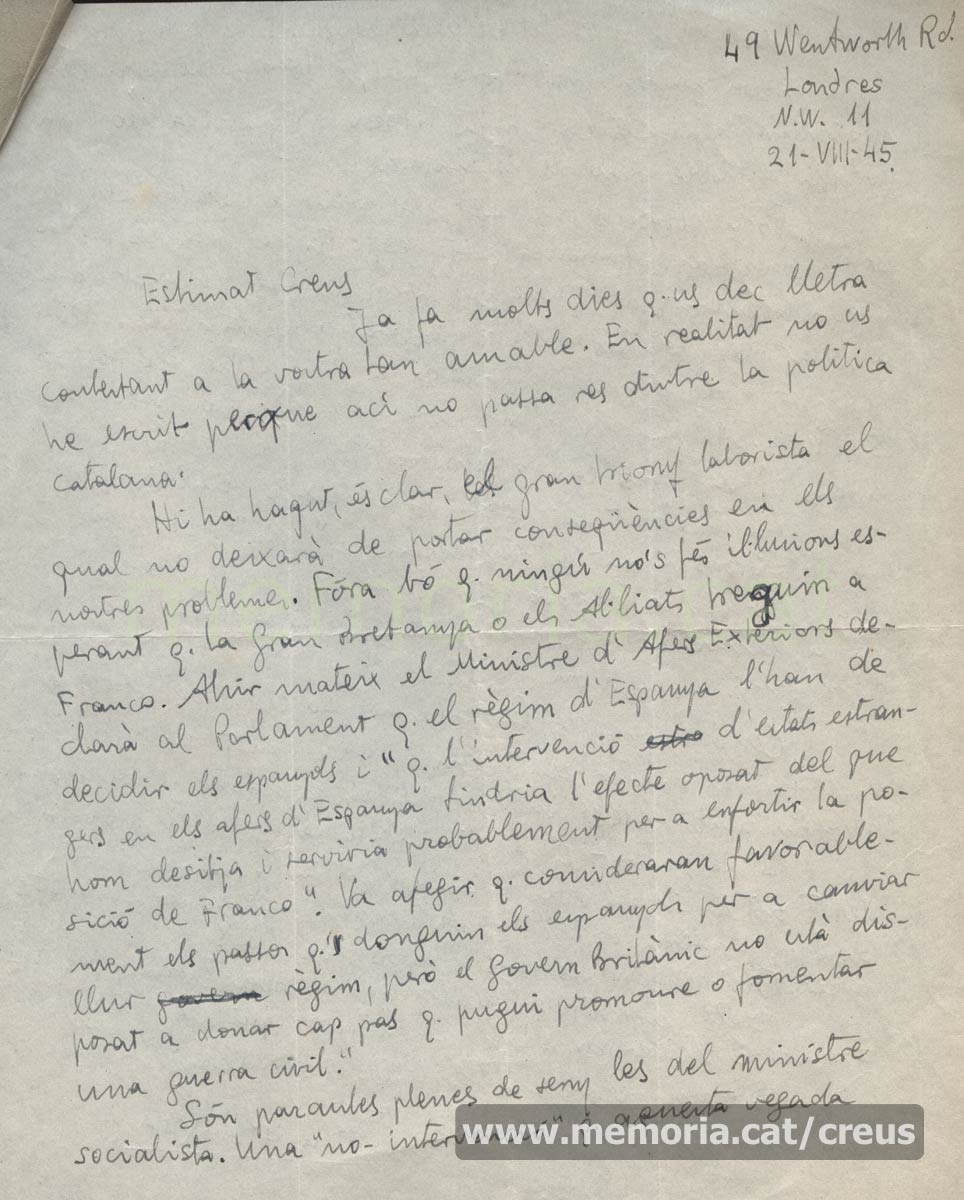 49 Wentworth Rd.
Londres
N.W. 11
21-VIII-45.
Estimat Creus
Ja fa molts dies q. us dec lletra
contestant a la vostra tan amable. En realitat no us
he escrit perque ací no passa res dintre la política
catalana.
Hi ha hagut, és clar, el gran triomf laborista el
qual no deixarà de portar conseqüències en els
nostres problemes. Fóra bó q. ningú no's fés il·lusions es-
perant q. la Gran Bretanya o els Al·liats treguin a
Franco. Ahir mateix el Ministre d'Afers Exteriors de-
clarà al Parlament q. el règim d'Espanya l'han de
decidir els espanyols i "q. l'intervenció d'estats estran-
gers en els afers d'Espanya tindria l'efecte oposat del que
hom desitja i serviria probablement per a enfortir la po-
sició de Franco". Va afegir q. consideraran favorable-
ment els passos q.'s donguin els espanyols per a canviar
llur govern règim, però el Govern Britànic no està dis-
posat a donar cap pas q. pugui promoure o fomentar
una guerra civil."
Són paraules plenes de seny les del ministre
socialista. Una "no-intervenció" i aquesta vegada
www.memoria.cat/creus